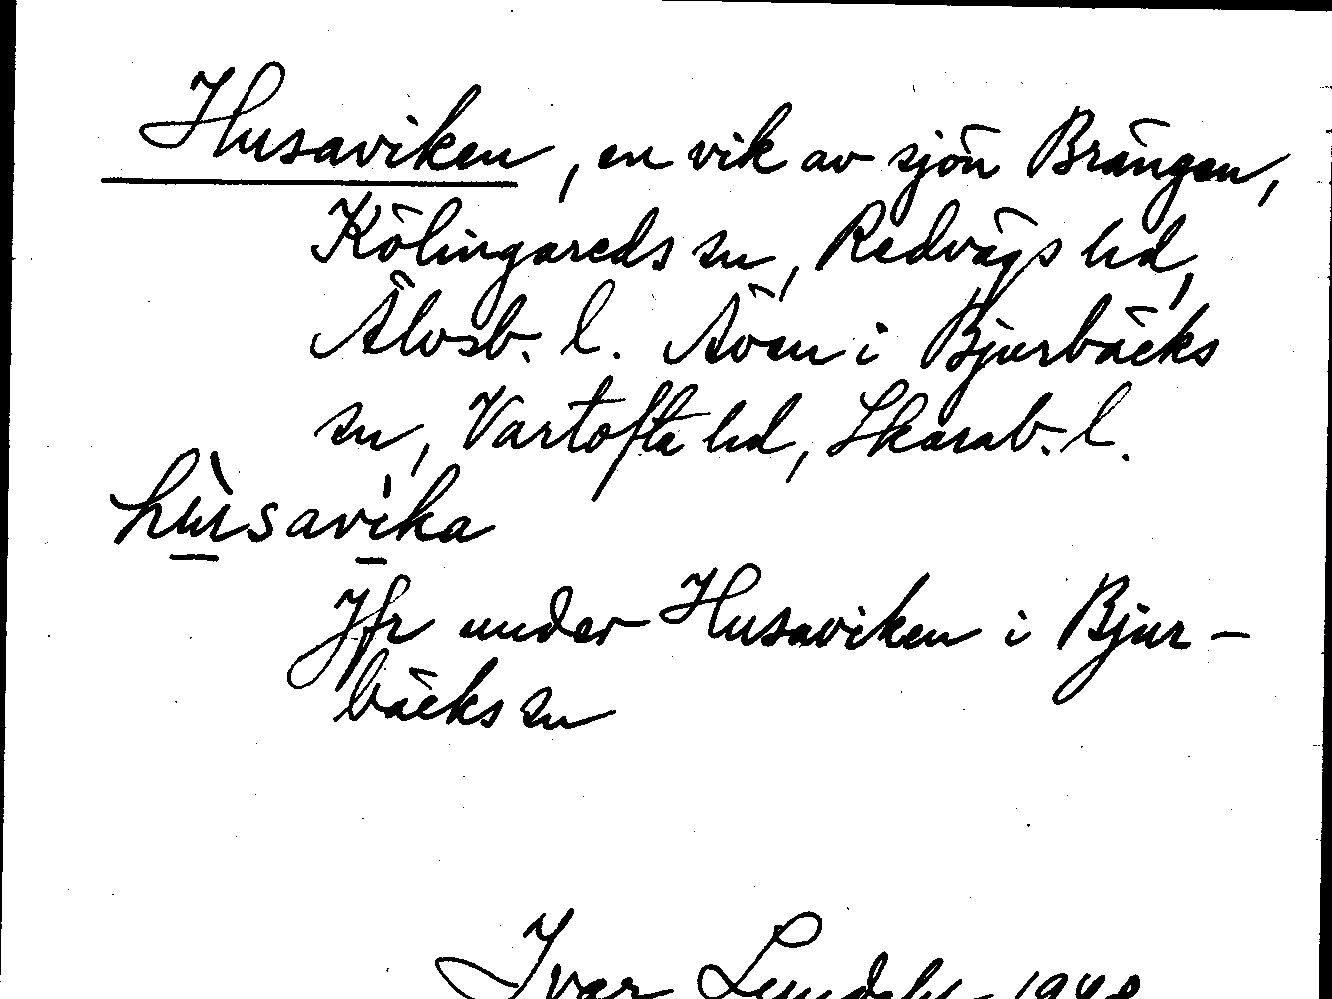 Husaviken, en vik av sjön Brängen,
Kölingareds sn, Redvägs hd,
Älvsb. l. Även i Bjurbäcks
sn, Vartofta hd, Skarab. l.
hùsavìka
Jfr under Husaviken i Bjur-
bäcks sn
Ivar Lundahl 1948